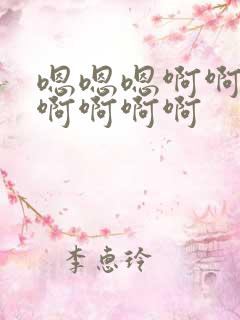 嗯嗯嗯啊啊
啊啊啊啊
李恵玲